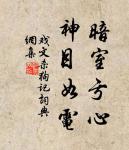 暗室亏心
神目如電
戏文杀狗记詞典
網集